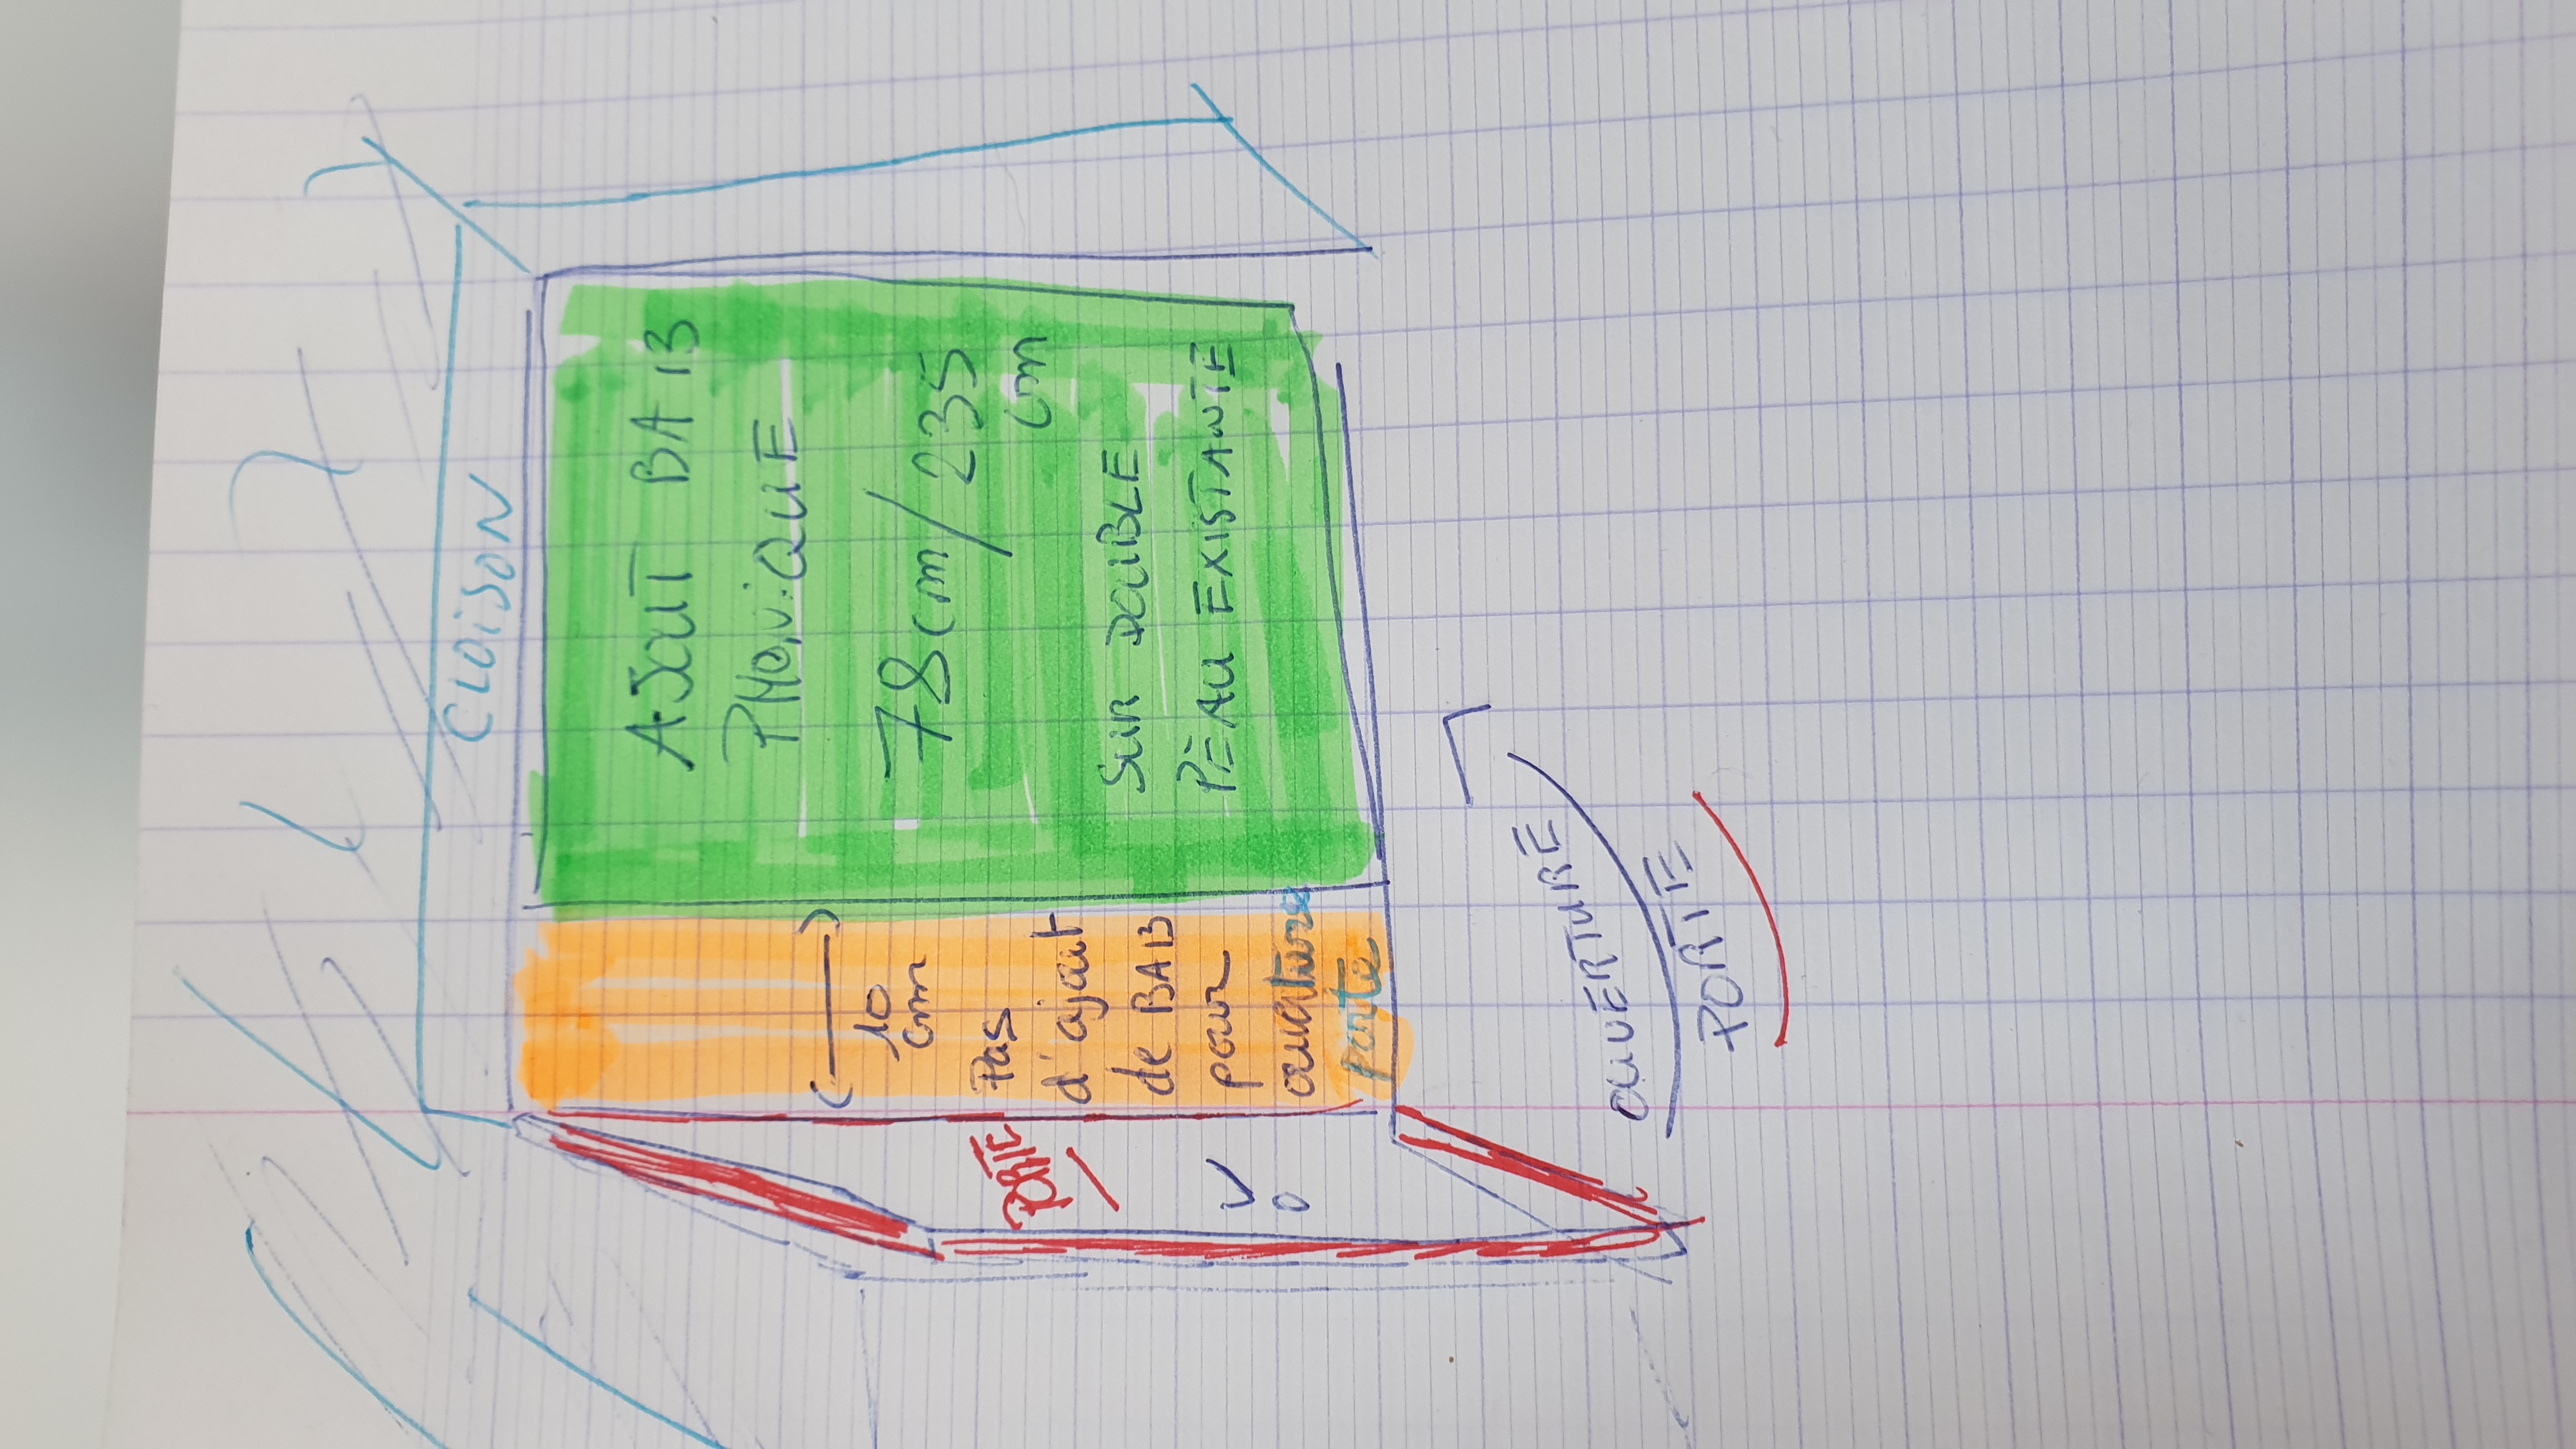 CLOISON
AJOUT BA 13
PHONiQUE
78 cm / 235
cm
SUR DOUBLE
PEAU EXISTANTE
10
cm
Pas
d'ajout
de BA13
pour
ouverture
porte
PORTE
OUVERTURE
PORTE